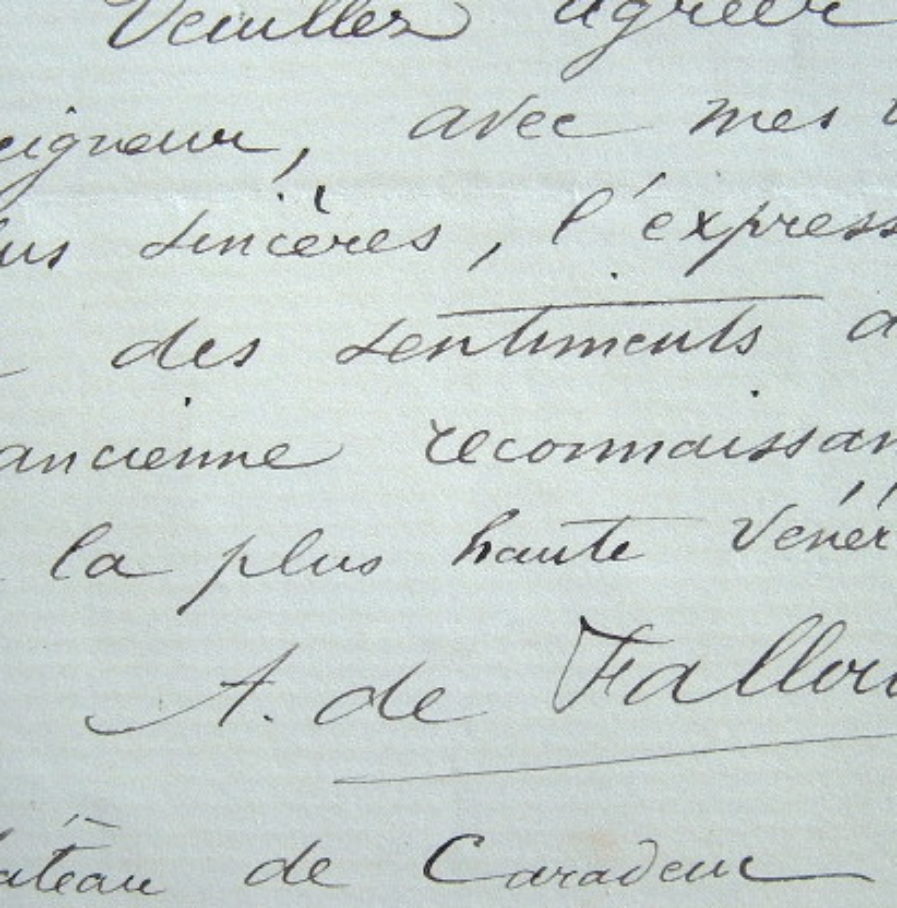 Veuillez agréer
eigneur, avec mes
lus sincères, l'express
des sentiments d
ancienne reconnaissan
la plus haute vénér
A. de Fallou
hateau de Caradeuc